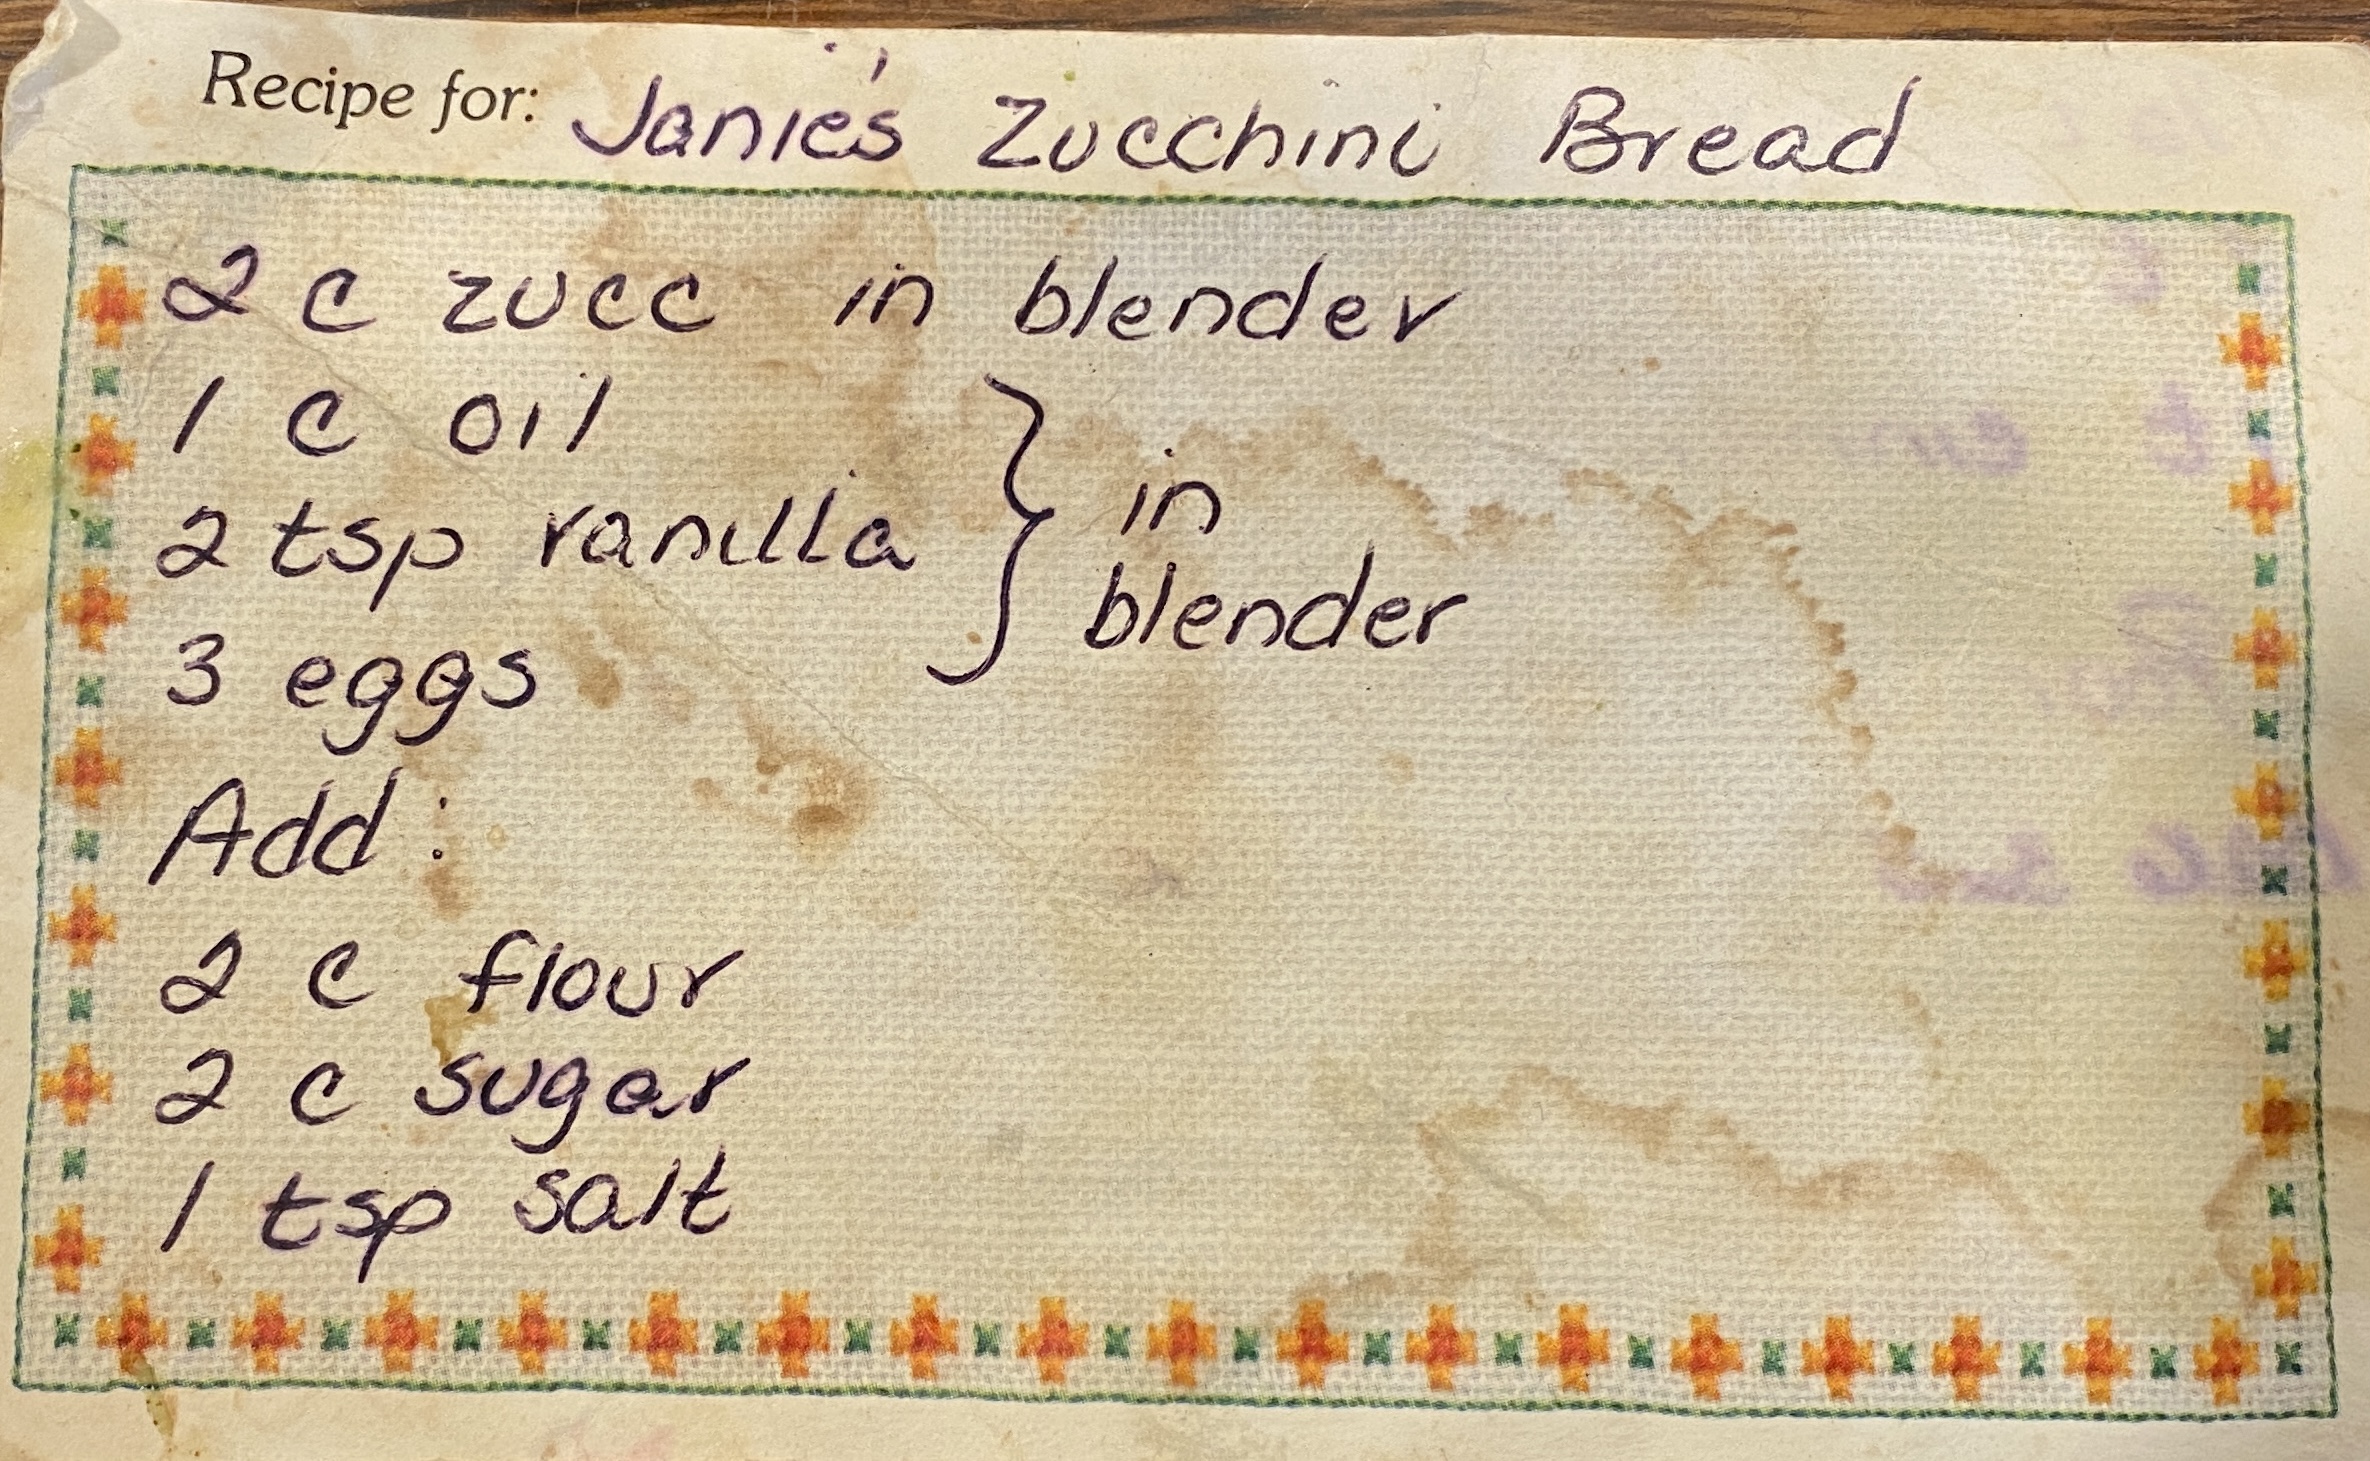 Recipe for: Janie's Zucchini Bread
2 c zucc in blender
1 c oil
2 tsp vanilla } in
3 eggs blender
Add :
2 c flour
2 c sugar
1 tsp salt